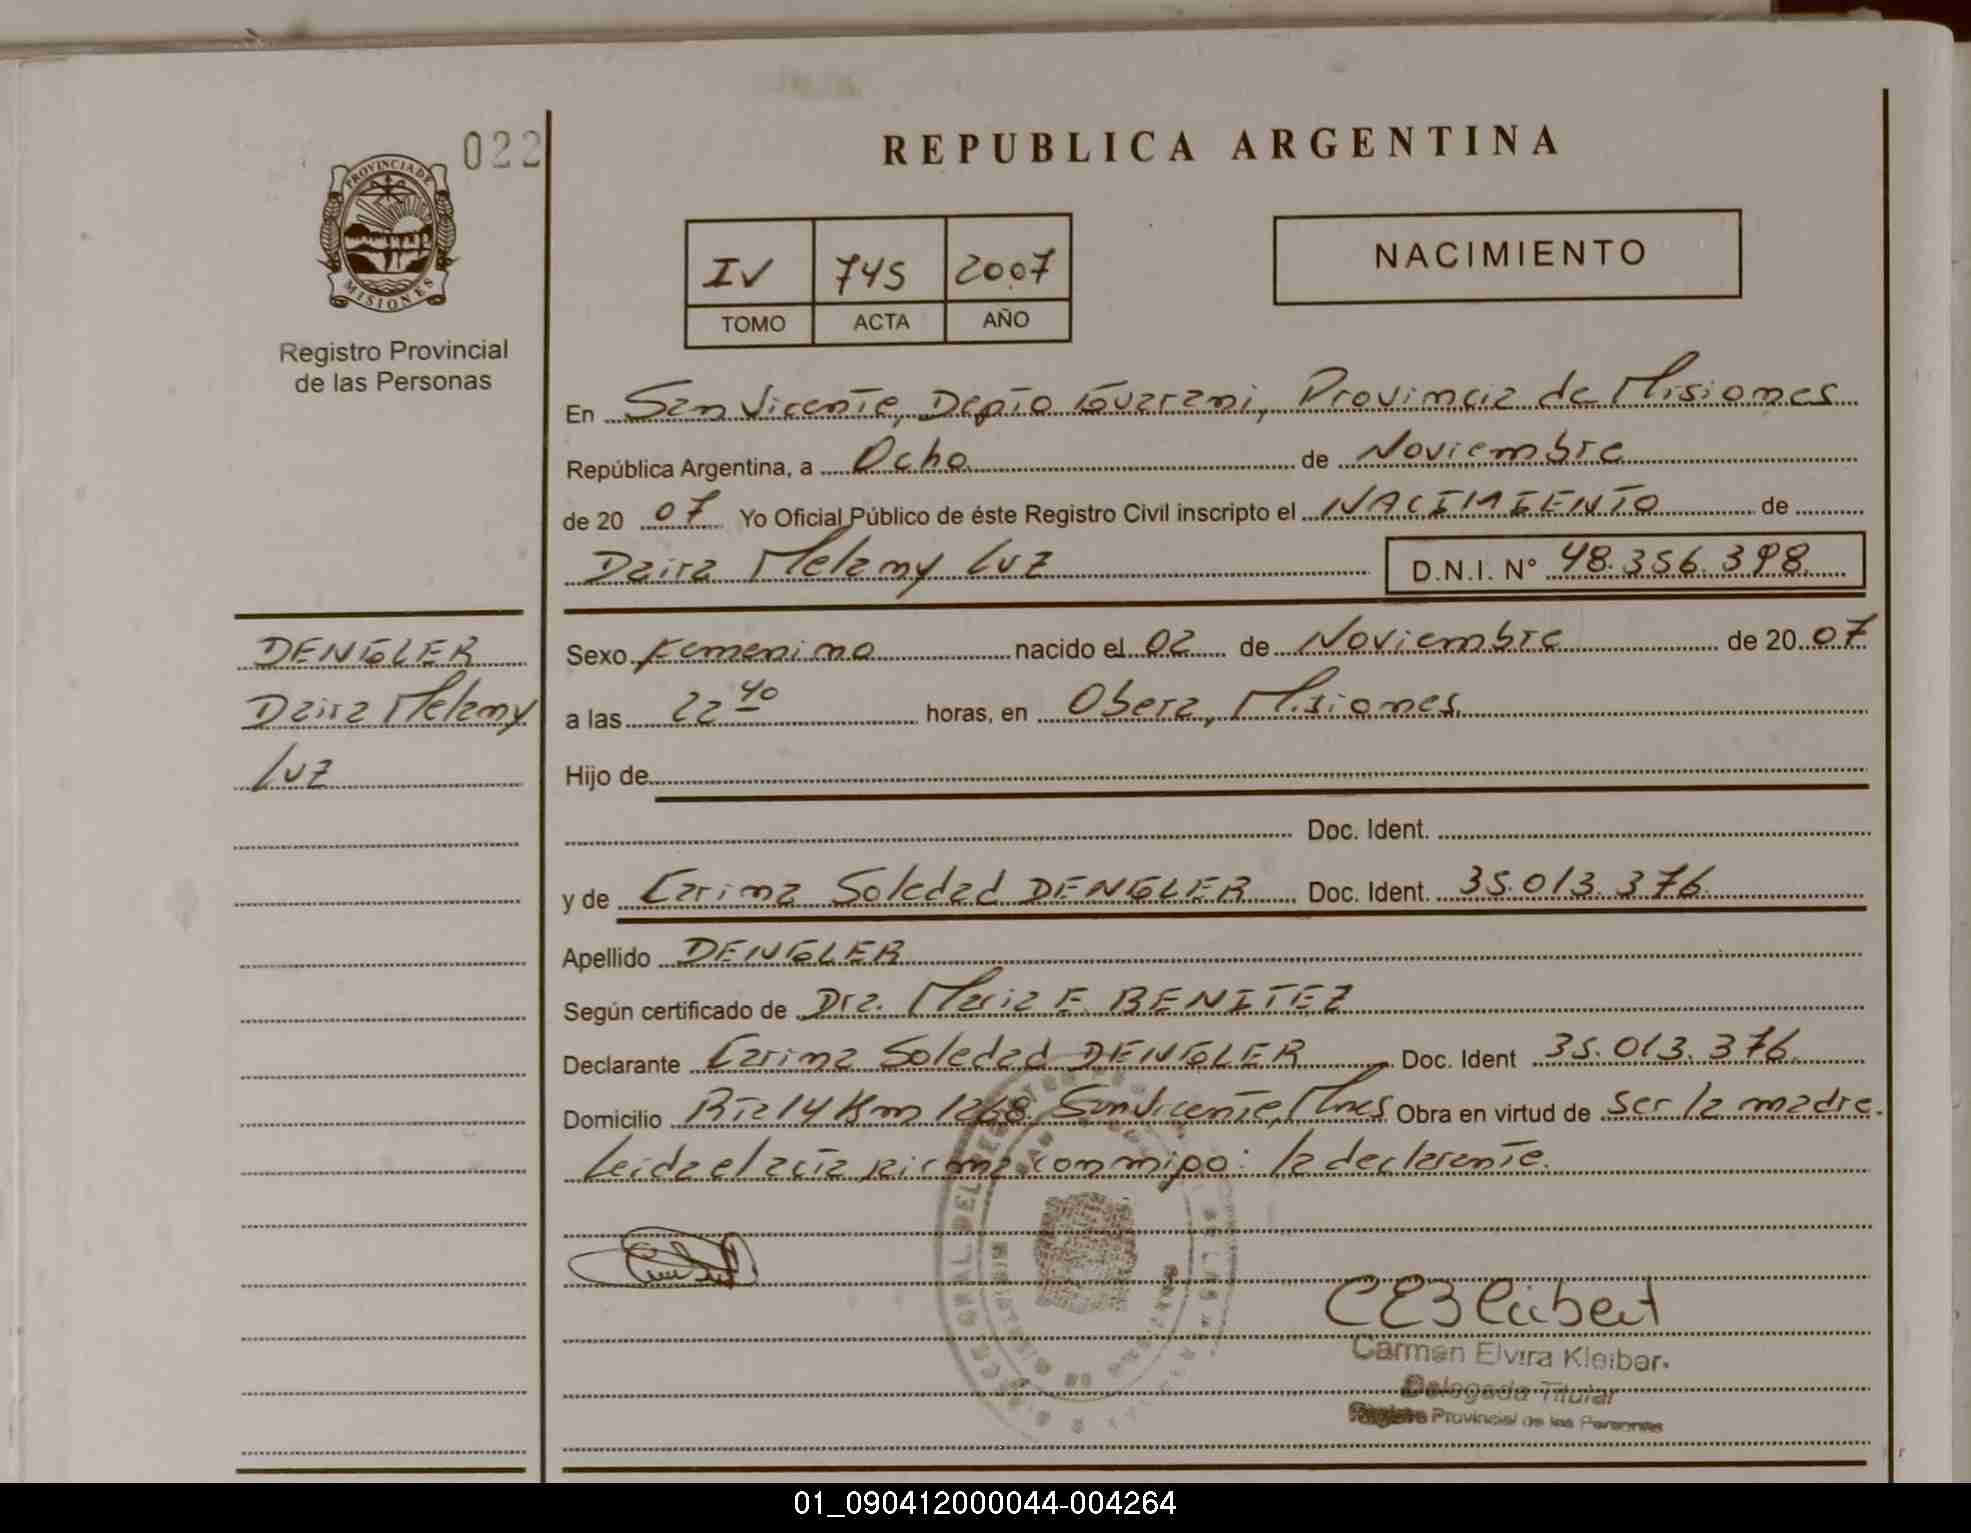 022
PROVINCIA DE
MISIONES
Registro Provincial
de las Personas
REPUBLICA ARGENTINA
IV 745 2007
TOMO ACTA AÑO
NACIMIENTO
En San Vicente, Depto Guarani, Provincia de Misiones
República Argentina, a Ocho de Noviembre
de 20 07 Yo Oficial Público de éste Registro Civil inscripto el NACIMIENTO de
Daira Melany Luz D.N.I. N° 48.356.398.
DENGLER
Daira Melany
Luz
Sexo Femenino nacido el 02 de Noviembre de 20 07
a las 22 40 horas, en Obera, Misiones.
Hijo de
Doc. Ident.
y de Carina Soledad DENGLER Doc. Ident. 35.013.376.
Apellido DENGLER
Según certificado de Dra. Maria E. BENITEZ
Declarante Carina Soledad DENGLER Doc. Ident 35.013.376.
Domicilio Rta 14 Km 1268. San Vicente, Mnes Obra en virtud de ser la madre.
Leida el acta firma conmigo: la declarante.
Carmen Elvira Kleiber.
Delegada Titular
Registro Provincial de las Personas
01_090412000044-004264